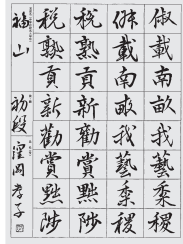 俶載南畝我藝黍稷
俶載南畝我藝黍稷
税熟貢新勸賞黜陟
税熟貢新勸賞黜陟
福山 初段 窪岡孝子